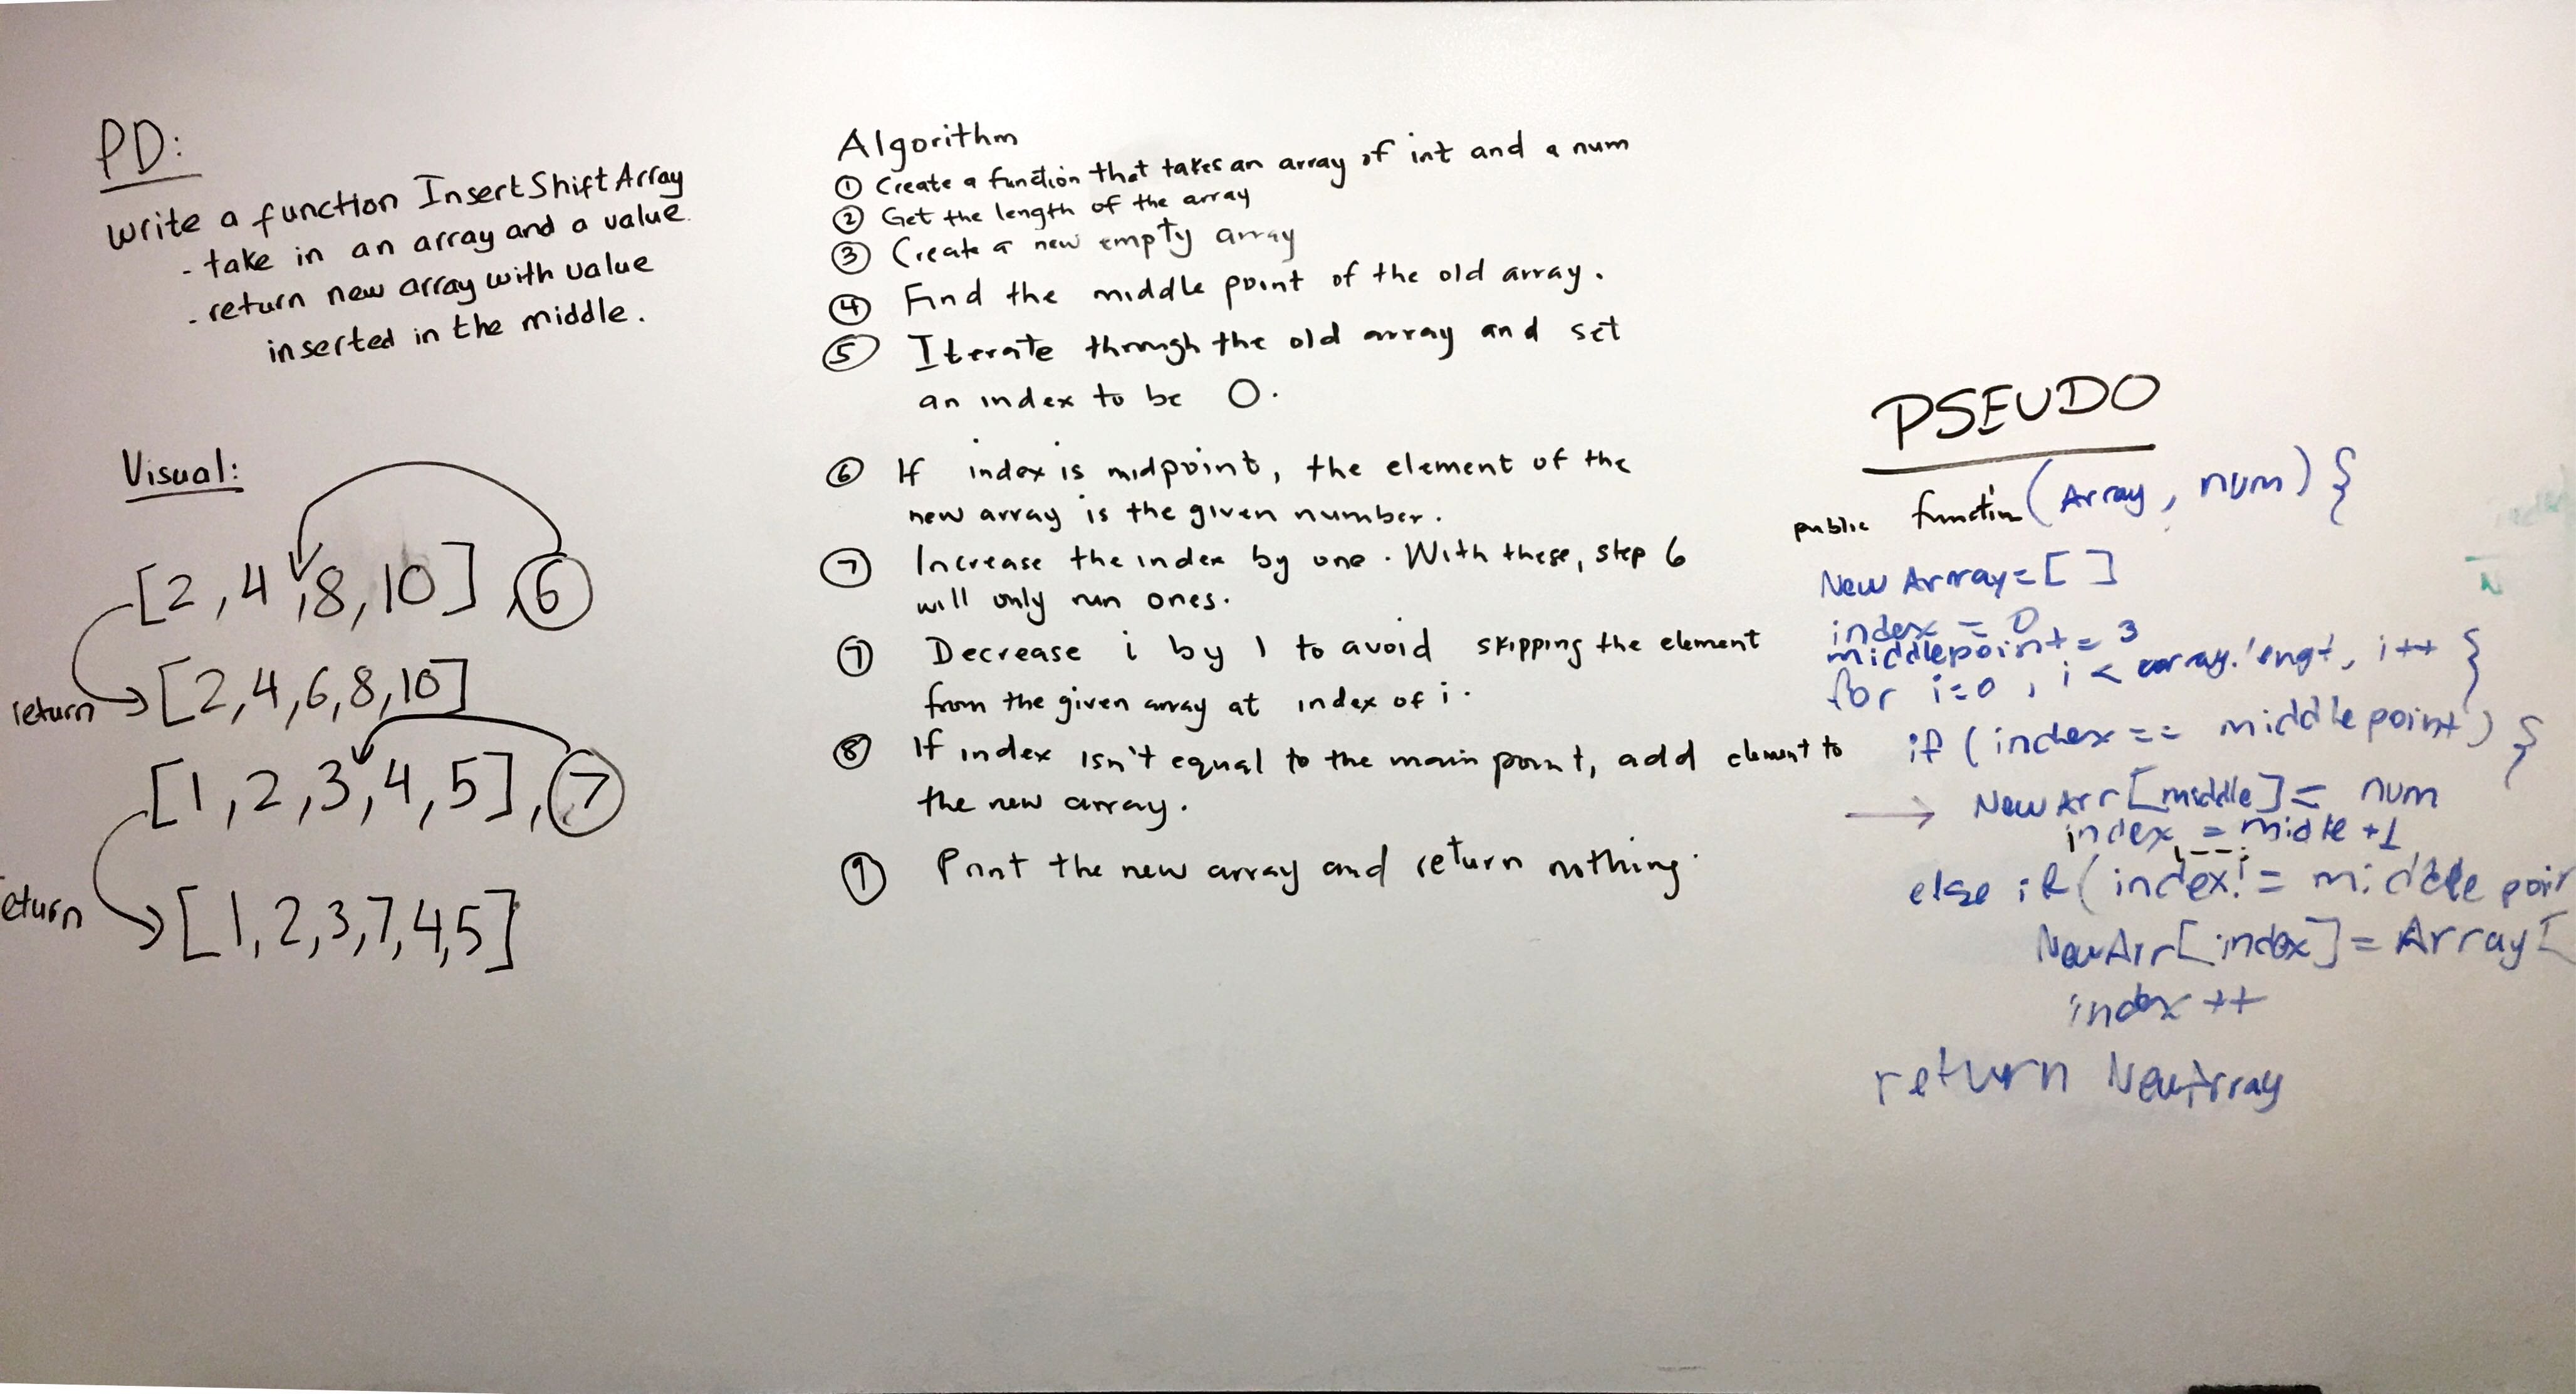 PD:
write a function InsertShiftArray
- take in an array and a value.
- return new array with value
inserted in the middle.
Visual:
[2,4,8,10], 6
return [2,4,6,8,10]
[1,2,3,4,5], 7
eturn [1,2,3,7,4,5]
Algorithm
① Create a function that takes an array of int and a num
② Get the length of the array
③ Create a new empty array
④ Find the middle point of the old array.
⑤ Iterate through the old array and set
an index to be 0.
⑥ If index is midpoint, the element of the
new array is the given number.
⑦ Increase the index by one. With these, step 6
will only run ones.
⑦ Decrease i by 1 to avoid skipping the element
from the given array at index of i.
⑧ If index isn't equal to the main point, add element to
the new array.
⑨ Print the new array and return nothing.
PSEUDO
public function (Array, num) {
New Array = [ ]
index = 0
middlepoint = 3
for i=0, i < array.lengt, i++ }
if (index == middle point) }
→ New Arr [middle] = num
index = midle +1
i--;
else if (index != middle poin
NewArr[index] = Array [
index ++
return NewArray